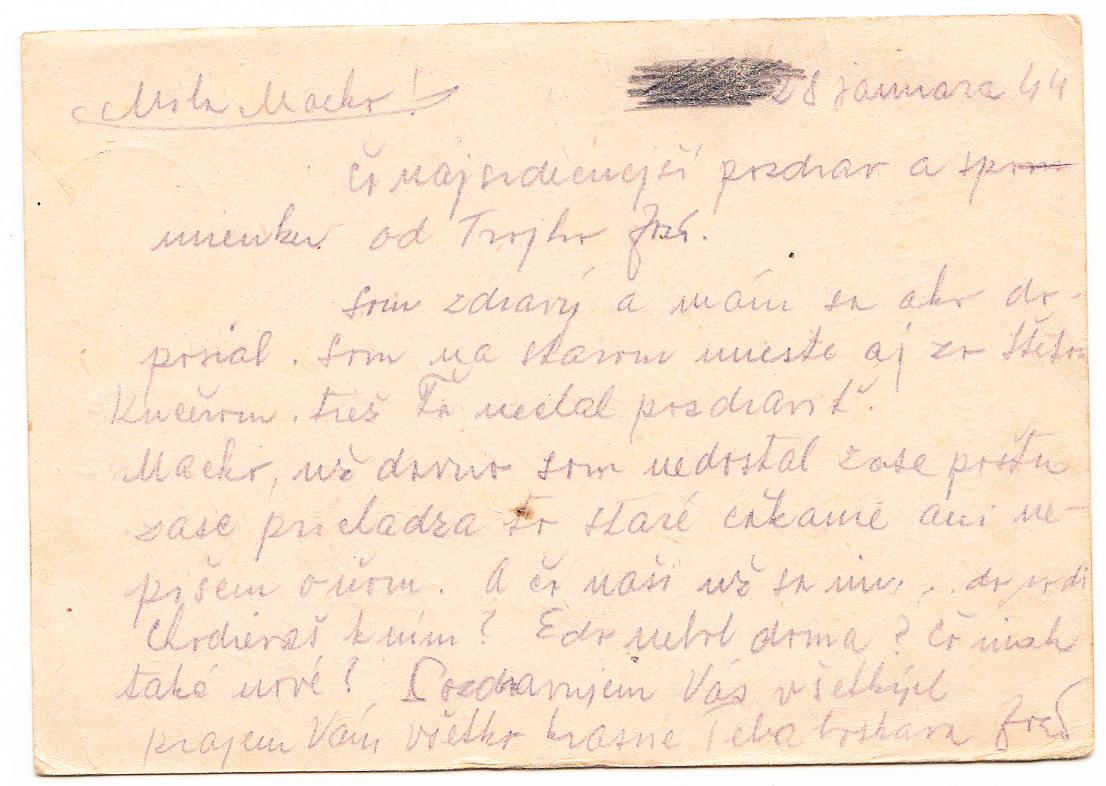 Mila Macko! 28 januara 44
Čo najsrdecnejší pozdrav a spom
mienku od Tvojho
som zdravý a mám sa ako do-
posial. som na starom mieste aj zo Štefom
Kučérom. tiež Ťa nechal pozdraviť.
Macko, už davno som nedostal zase poštu
zase prichadza to staré čakanie ani ne-
pišem o ňom. A čo naši už sa
Chodievaš k ním? Edo nebol doma? Čo inak
také nové? Pozdravujem Vás všetkých
prajem Vám všetko krasne Teba boskava